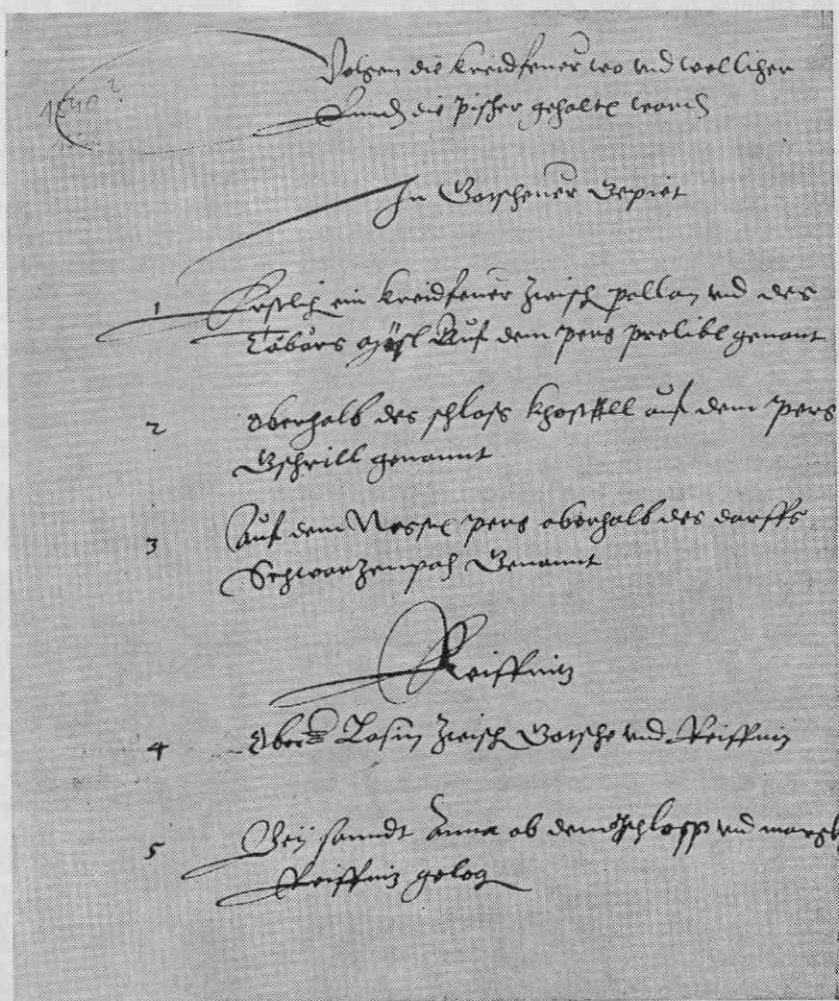 Volgen die kreidfeuer wo und wellicher
die pisher gehalten worden
1540?
In Gotscheuer Gepiet
1 Erstlich ein kreidfeuer zwisch pollan und des
Tabors auf dem perg prelibl genant
2 Oberhalb des schloss khostell auf dem perg
Gschrill genannt
3 Auf dem Nessel perg oberhalb des dorffs
Schwarzenpach Genannt
Reiffnitz
4 Ober zwisch Gotsche und Reiffniz
5 Bey sanndt Anna ob dem schloss und markt
Reiffniz geleg